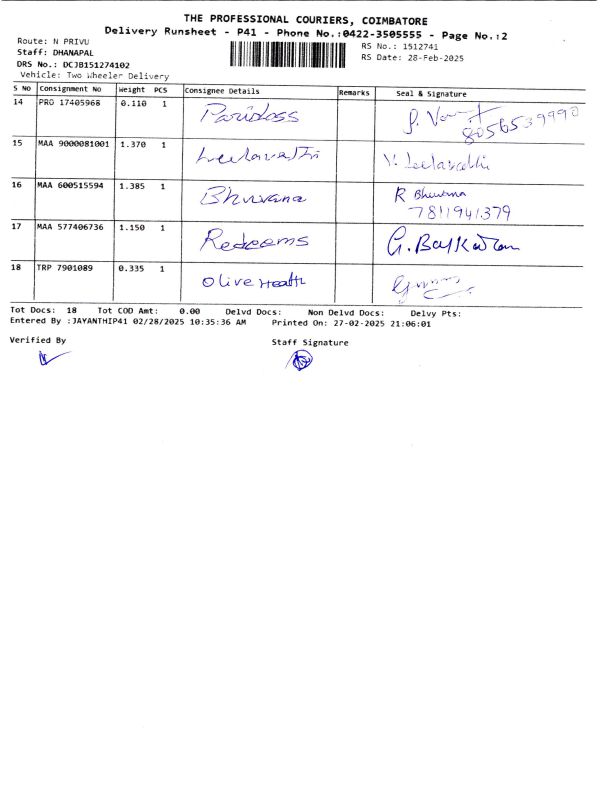 THE PROFESSIONAL COURIERS, COIMBATORE
Delivery Runsheet - P41 - Phone No.:0422-3505555 - Page No.:2
Route: N PRIVU
RS No.: 1512741
Staff: DHANAPAL
RS Date: 28-Feb-2025
DRS No.: DCJB151274102
Vehicle: Two Wheeler Delivery
S No Consignment No Weight PCS Consignee Details Remarks Seal & Signature
14 PRO 17405968 0.110 1
8056539990
15 MAA 9000081001 1.370 1 Leelavathi V. Leelavathi
16 MAA 600515594 1.385 1 Bhuvana R Bhuvana
7811941379
17 MAA 577406736 1.150 1 Redeems
18 TRP 7901089 0.335 1 Olive Health
Tot Docs: 18 Tot COD Amt: 0.00 Delvd Docs: Non Delvd Docs: Delvy Pts:
Entered By :JAYANTHIP41 02/28/2025 10:35:36 AM Printed On: 27-02-2025 21:06:01
Verified By
Staff Signature